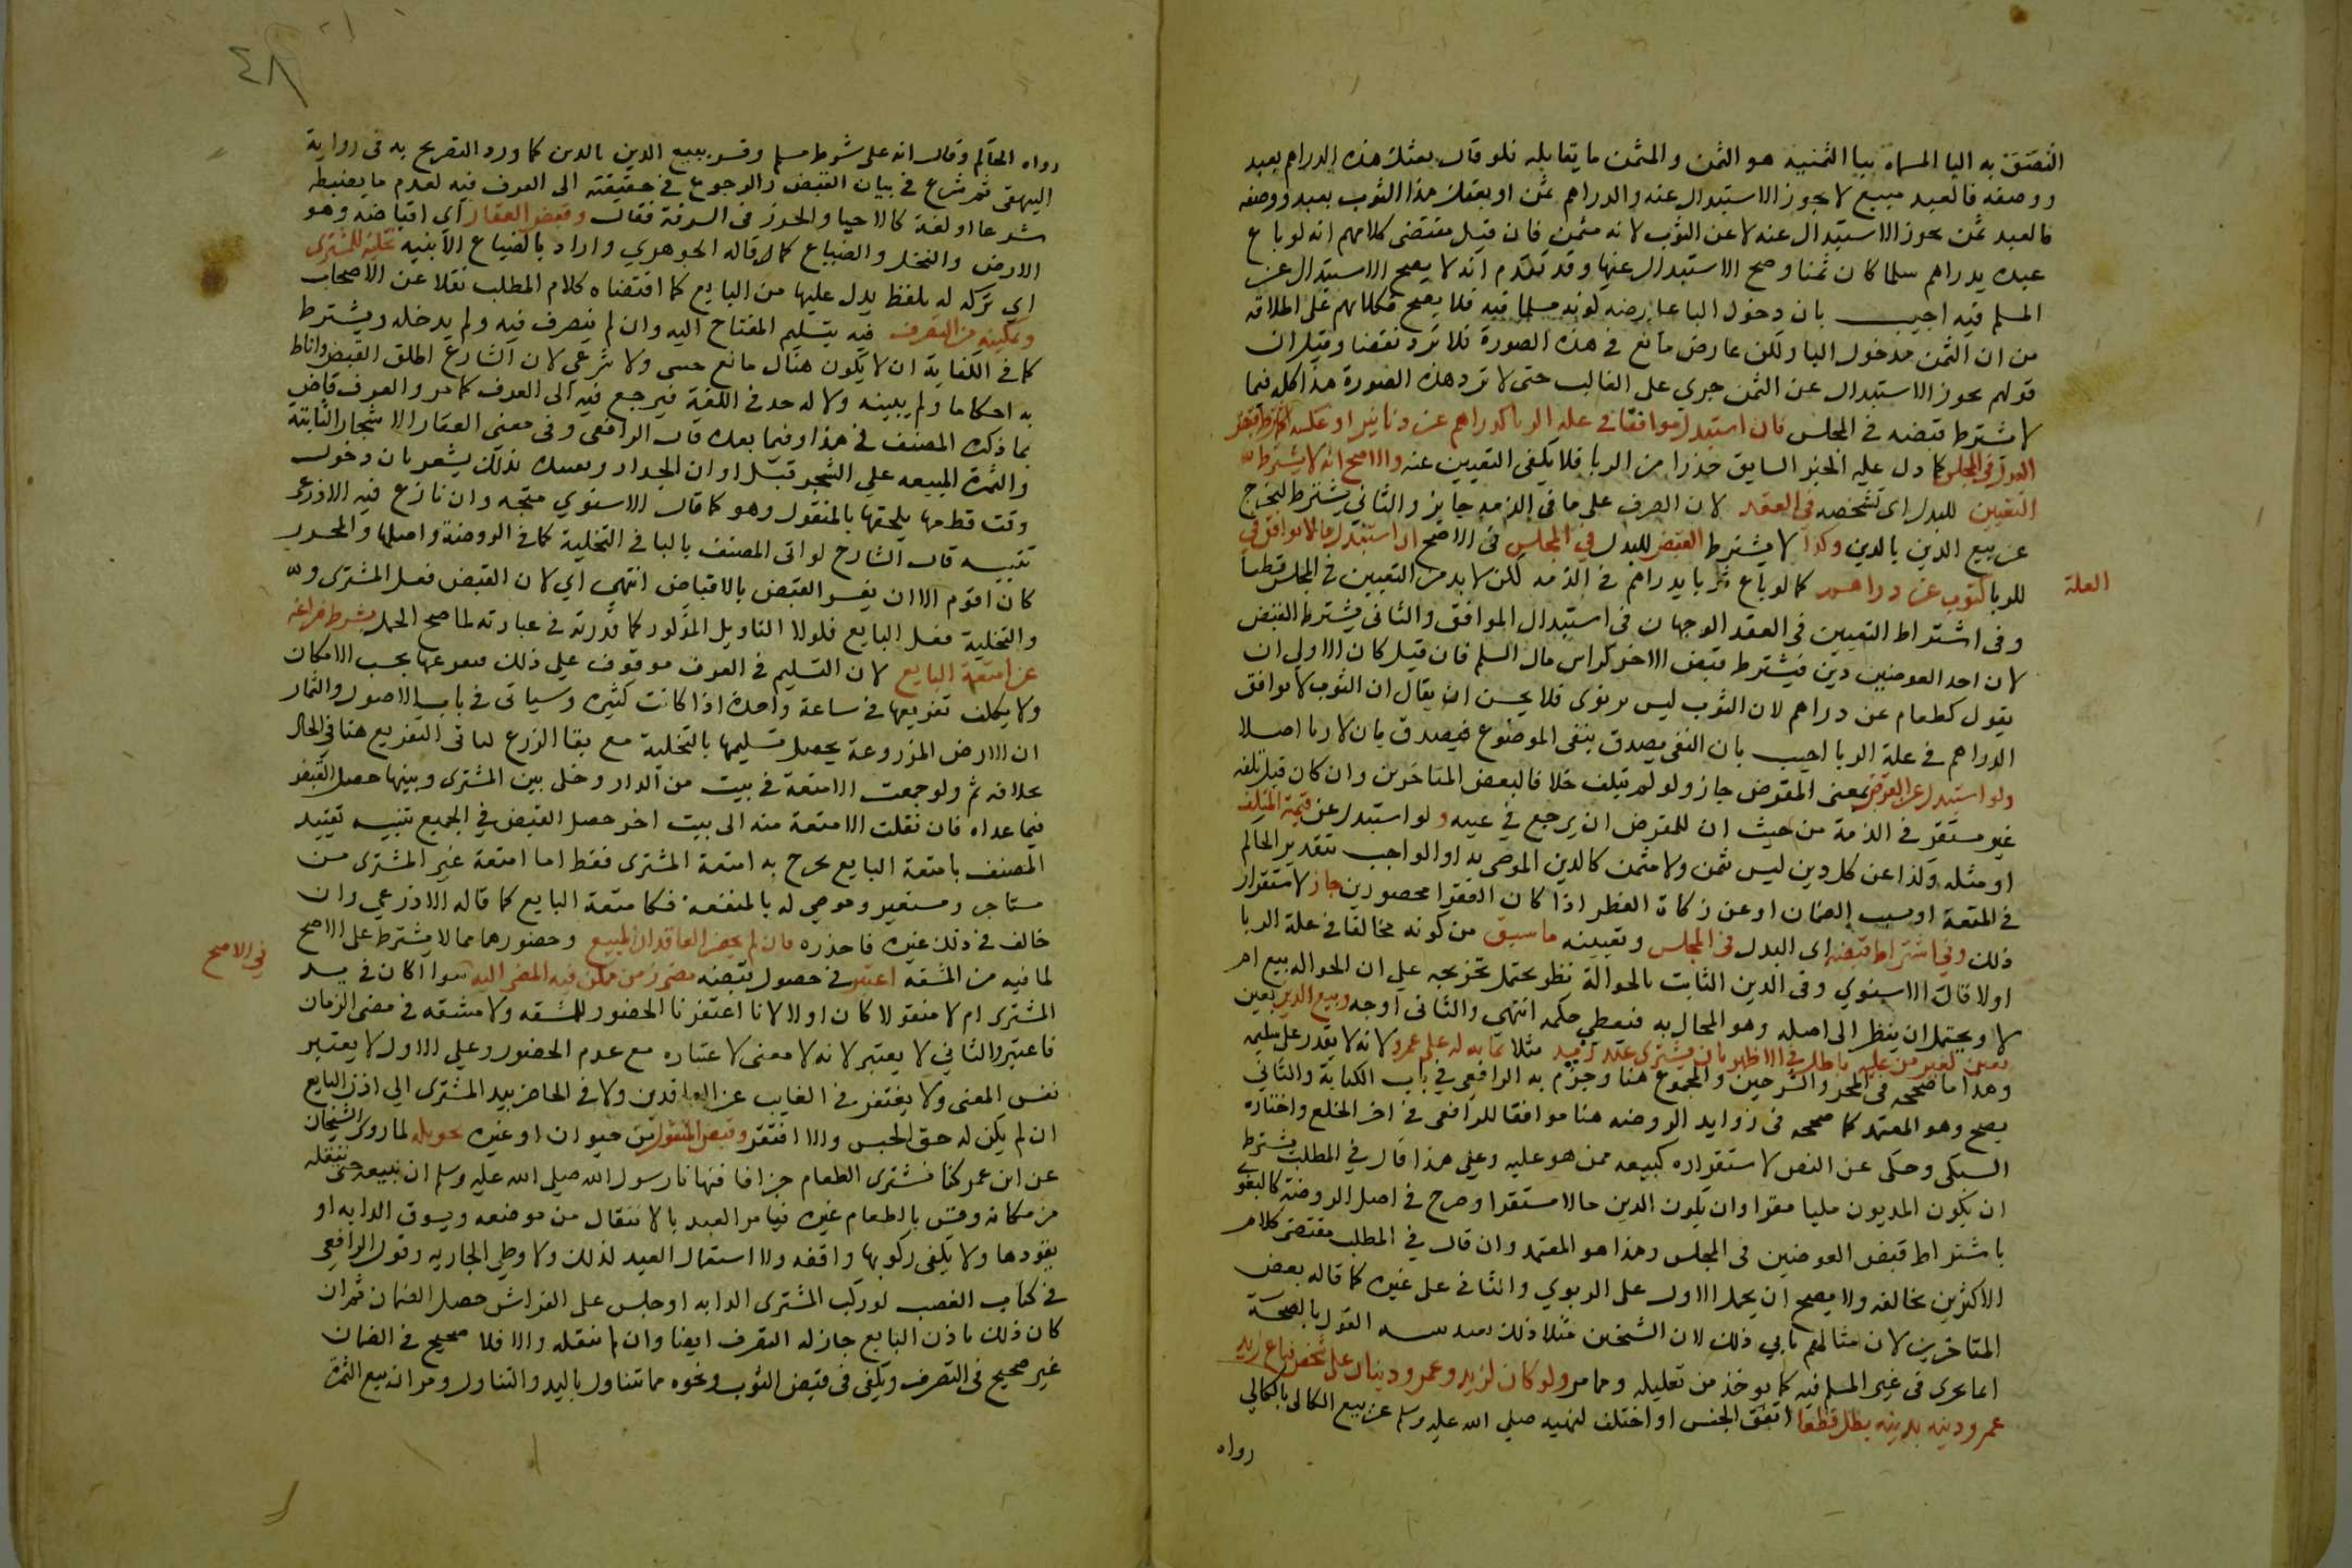 التصق به البا المسماة ببا الثمنية هو الثمن والمثمن ما يقابله فلو قال بعتك هذه الدراهم بعبد
ووصفه فالعبد مبيع لا يجوز الاستبدال عنه والدراهم ثمن او بعتك هذا الثوب بعبد ووصفه
فالعبد ثمن يجوز الاستبدال عنه لا عن الثوب لانه مثمن فان قيل مقتضى كلامهم انه لو باع
عبده بدراهم سلما كان ثمنا وصح الاستبدال عنها وقد تقدم انه لا يصح الاستبدال عن
المسلم فيه اجيب بان دخول البا عارضه كونه مسلما فيه فلا يصح فكلامهم على اطلاقه
من ان الثمن مدخول البا ولكن عارض مانع في هذه الصورة فلا ترد نقضا وقيل ان
قولهم يجوز الاستبدال عن الثمن جرى على الغالب حتى لا ترد هذه الصورة هذا كله فيما
لا يشترط قبضه في المجلس فان استبدل موافقا في علة الربا كدراهم عن دنانير او عكسه اشترط قبض
البدل في المجلس كما دل عليه الخبر السابق حذرا من الربا فلا يكفي التعيين عنه والاصح انه لا يشترط
التعيين للبدل اى تشخصه في العقد لان الصرف على ما في الذمة جايز والثاني يشترط ليخرج
عن بيع الدين بالدين وكذا لا يشترط القبض للبدل في المجلس في الاصح ان استبدل ما لا يوافق في
العلة
للربا كثوب عن دراهم كما لو باع ثوبا بدراهم في الذمة لكن لا بد من التعيين في المجلس قطعا
وفي اشتراط التعيين في العقد الوجهان في استبدال الموافق والثاني يشترط القبض
لان احد العوضين دين فيشترط قبض الاخر كراس مال السلم فان قيل كان الاولى ان
يقول كطعام عن دراهم لان الثوب ليس بربوى فلا يحسن ان يقال ان الثوب لا يوافق
الدراهم في علة الربا اجيب بان النفي يصدق بنفي الموضوع فيصدق بان لا ربا اصلا
ولو استبدل عن القرض بمعنى المقرض جاز ولو لم يتلف خلافا لبعض المتاخرين وان كان قبل تلفه
غير مستقر في الذمة من حيث ان للمقرض ان يرجع في عينه ولو استبدل عن قيمة المتلف
او مثله وكذا عن كل دين ليس بثمن ولا مثمن كالدين الموصى به او الواجب بتقدير الحاكم
في المتعة او بسبب الضمان او عن زكاة الفطر اذا كان الفقرا محصورين جاز لاستقرار
ذلك وفي اشتراط قبضه اى البدل في المجلس وتعيينه ما سبق من كونه مخالفا في علة الربا
اولا قال الاسنوي وفي الدين الثابت بالحوالة نظر يحتمل تخريجه على ان الحوالة بيع ام
لا ويحتمل ان ينظر الى اصله وهو المحال به فيعطي حكمه انتهى والثاني اوجه وبيع الدين بعين
بعين لغير من عليه باطل في الاظهر بان يشتري عبد زيد مثلا بماية له على عمرو لانه لا يقدر على تسليمه
وهذا ما صححه في المحرر والشرحين والمجموع هنا وجزم به الرافعي في باب الكتابة والثاني
يصح وهو المعتمد كما صححه في زوايد الروضة هنا موافقا للرافعي في اخر الخلع واختاره
السبكى وحكى عن النص لاستقراره كبيعه ممن هو عليه وعلى هذا قال في المطلب يشترط
ان يكون المديون مليا مقرا وان يكون الدين حالا مستقرا وصرح في اصل الروضة كالبغوي
باشتراط قبض العوضين في المجلس وهذا هو المعتمد وان قال في المطلب مقتضى كلام
الاكثرين يخالفه ولا يصح ان يحمل الاول على الربوي والثاني على غيره كما قاله بعض
المتاخرين لان مثالهم يابي ذلك لان الشيخين مثلا ذلك بعبد القول بالصحة
انما يجرى في غير المسلم فيه كما يوخذ من تعليله ومما مر ولو كان لزيد وعمرو دينان على شخص فباع زيد
عمرو دينه بدينه بطل قطعا اتفق الجنس او اختلف لنهيه صلى الله عليه وسلم عن بيع الكالي بالكالي
رواه
٤٨
رواه الحاكم وقال انه على شرط مسلم وفسر ببيع الدين بالدين كما ورد التصريح به في رواية
البيهقى ثم شرع في بيان القبض والرجوع في حقيقته الى العرف فيه لعدم ما يضبطه
شرعا او لغة كالاحيا والحرز في السرقة فقال وقبض العقار اي اقباضه وهو
الارض والنخل والضياع كما قاله الجوهري واراد بالضياع الابنيه تخليته للمشترى
اى تركه له بلفظ يدل عليها من البايع كما اقتضاه كلام المطلب نقلا عن الاصحاب
وتمكينه من التصرف فيه بتسليم المفتاح اليه وان لم يتصرف فيه ولم يدخله ويشترط
كما في الكفاية ان لا يكون هناك مانع حسى ولا شرعي لان الشارع اطلق القبض واناط
به احكاما ولم يبينه ولا له حد في اللغة فيرجع فيه الى العرف كما مر والعرف قاض
بما ذكره المصنف في هذا وفيما بعده قال الرافعي وفي معنى العقار الاشجار الثابتة
والثمرة المبيعه على الشجر قبل اوان الجداد وتقييده بذلك يشعر بان دخول
وقت قطعها يلحقها بالمنقول وهو كما قال الاسنوي متجه وان نازع فيه الاذرعي
تنبيه قال الشارح لو اتى المصنف بالبا في التخلية كما في الروضة واصلها والمحرر
كان اقوم الا ان يفسر القبض بالاقباض انتهى اي لان القبض فعل المشترى
والتخلية فعل البايع فلولا التاويل المذكور كما قدرته في عبارته لما صح الحمل بشرط فراغه
عن امتعة البايع لان التسليم في العرف موقوف على ذلك فيفرغها بحسب الامكان
ولا يكلف تفريغها في ساعة واحدة اذا كانت كثيرة وسياتى في باب الاصول والثمار
ان الارض المزروعة يحصل تسليمها بالتخلية مع بقا الزرع لتاتى التفريغ هنا في الحال
بخلافه ثم ولو جمعت الامتعة في بيت من الدار وخلى بين المشترى وبينها حصل القبض
فيما عداه فان نقلت الامتعة منه الى بيت اخر حصل القبض في الجميع تنبيه تقييد
المصنف بامتعة البايع يخرج به امتعة المشترى فقط اما امتعة غير المشترى من
مستاجر ومستعير وموصى له بالمنفعة فكامتعة البايع كما قاله الاذرعي وان
خالف في ذلك غيره فاحذره فان لم يحضر العاقدان المبيع وحضورهما مما لا يشترط على الاصح
لما فيه من المشقة اعتبر في حصول قبضه مضى زمن يمكن فيه المضى اليه سوا اكان في يد
في الاصح
المشترى ام لا منقولا كان اولا لانا اغتفرنا الحضور للمشقه ولا مشقه في مضى الزمان
فاعتبر والثاني لا يعتبر لانه لا معنى لاعتباره مع عدم الحضور وعلى الاول لا يعتبر
نفس المضى ولا يفتقر في الغايب عن العاقدين ولا في الحاضر بيد المشترى الى اذن البايع
ان لم يكن له حق الحبس والا افتقر وقبض المنقول من حيوان او غيره تحويله لما روى الشيخان
عن ابن عمر كنا نشترى الطعام جزافا فنهانا رسول الله صلى الله عليه وسلم ان نبيعه حتى ننقله
من مكانه وقيس بالطعام غيره فيامر العبد بالانتقال من موضعه ويسوق الدابه او
يقودها ولا يكفى ركوبها واقفه ولا استعمال العبد لذلك ولا وطى الجاريه وقول الرافعي
في كتاب الغصب لو ركب المشترى الدابه او جلس على الفراش حصل الضمان ثم ان
كان ذلك باذن البايع جاز له التصرف ايضا وان لم ينقله والا فلا صحيح في الضمان
غير صحيح في التصرف ويكفى في قبض الثوب ونحوه مما يتناول باليد والتناول ومر ان بيع الثمرة